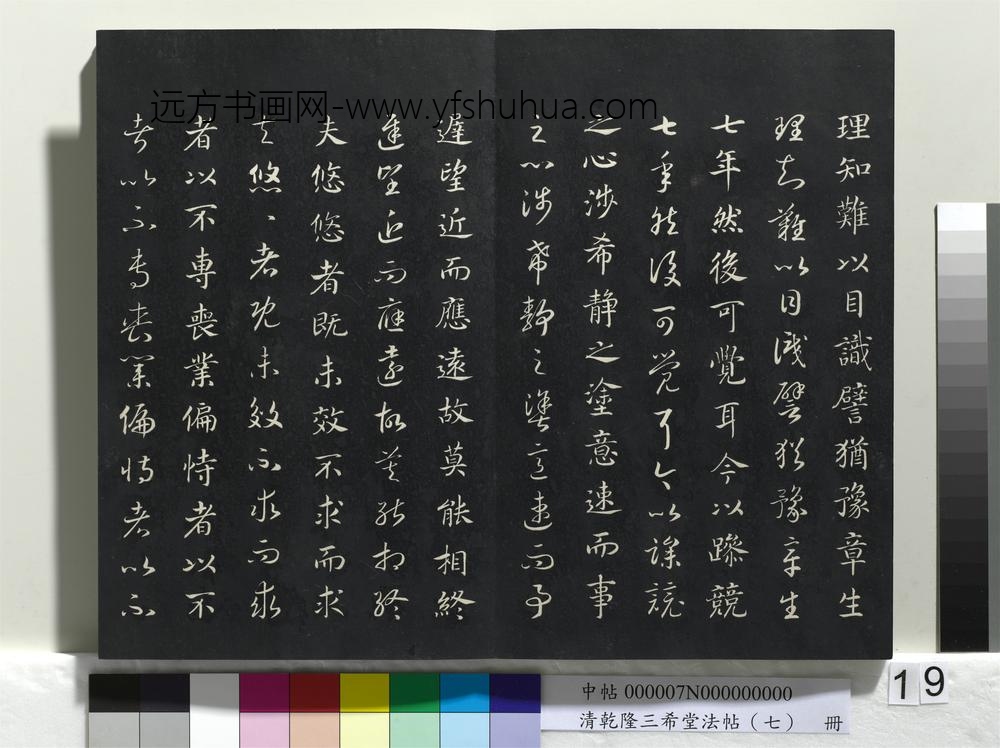 远方书画网-www.yfshuhua.com
理知難以目識譬猶豫章生
理知難以目識譬猶豫章生
七年然後可覺耳今以躁競
七年然後可覺耳今以躁競
之心涉希静之塗意速而事
之心涉希静之塗意速而事
遲望近而應遠故莫能相終
遲望近而應遠故莫能相終
夫悠悠者既未效不求而求
夫悠〻者既未效不求而求
者以不專喪業偏恃者以不
者以不專喪業偏恃者以不
中帖 000007N000000000
清乾隆三希堂法帖（七） 冊
19